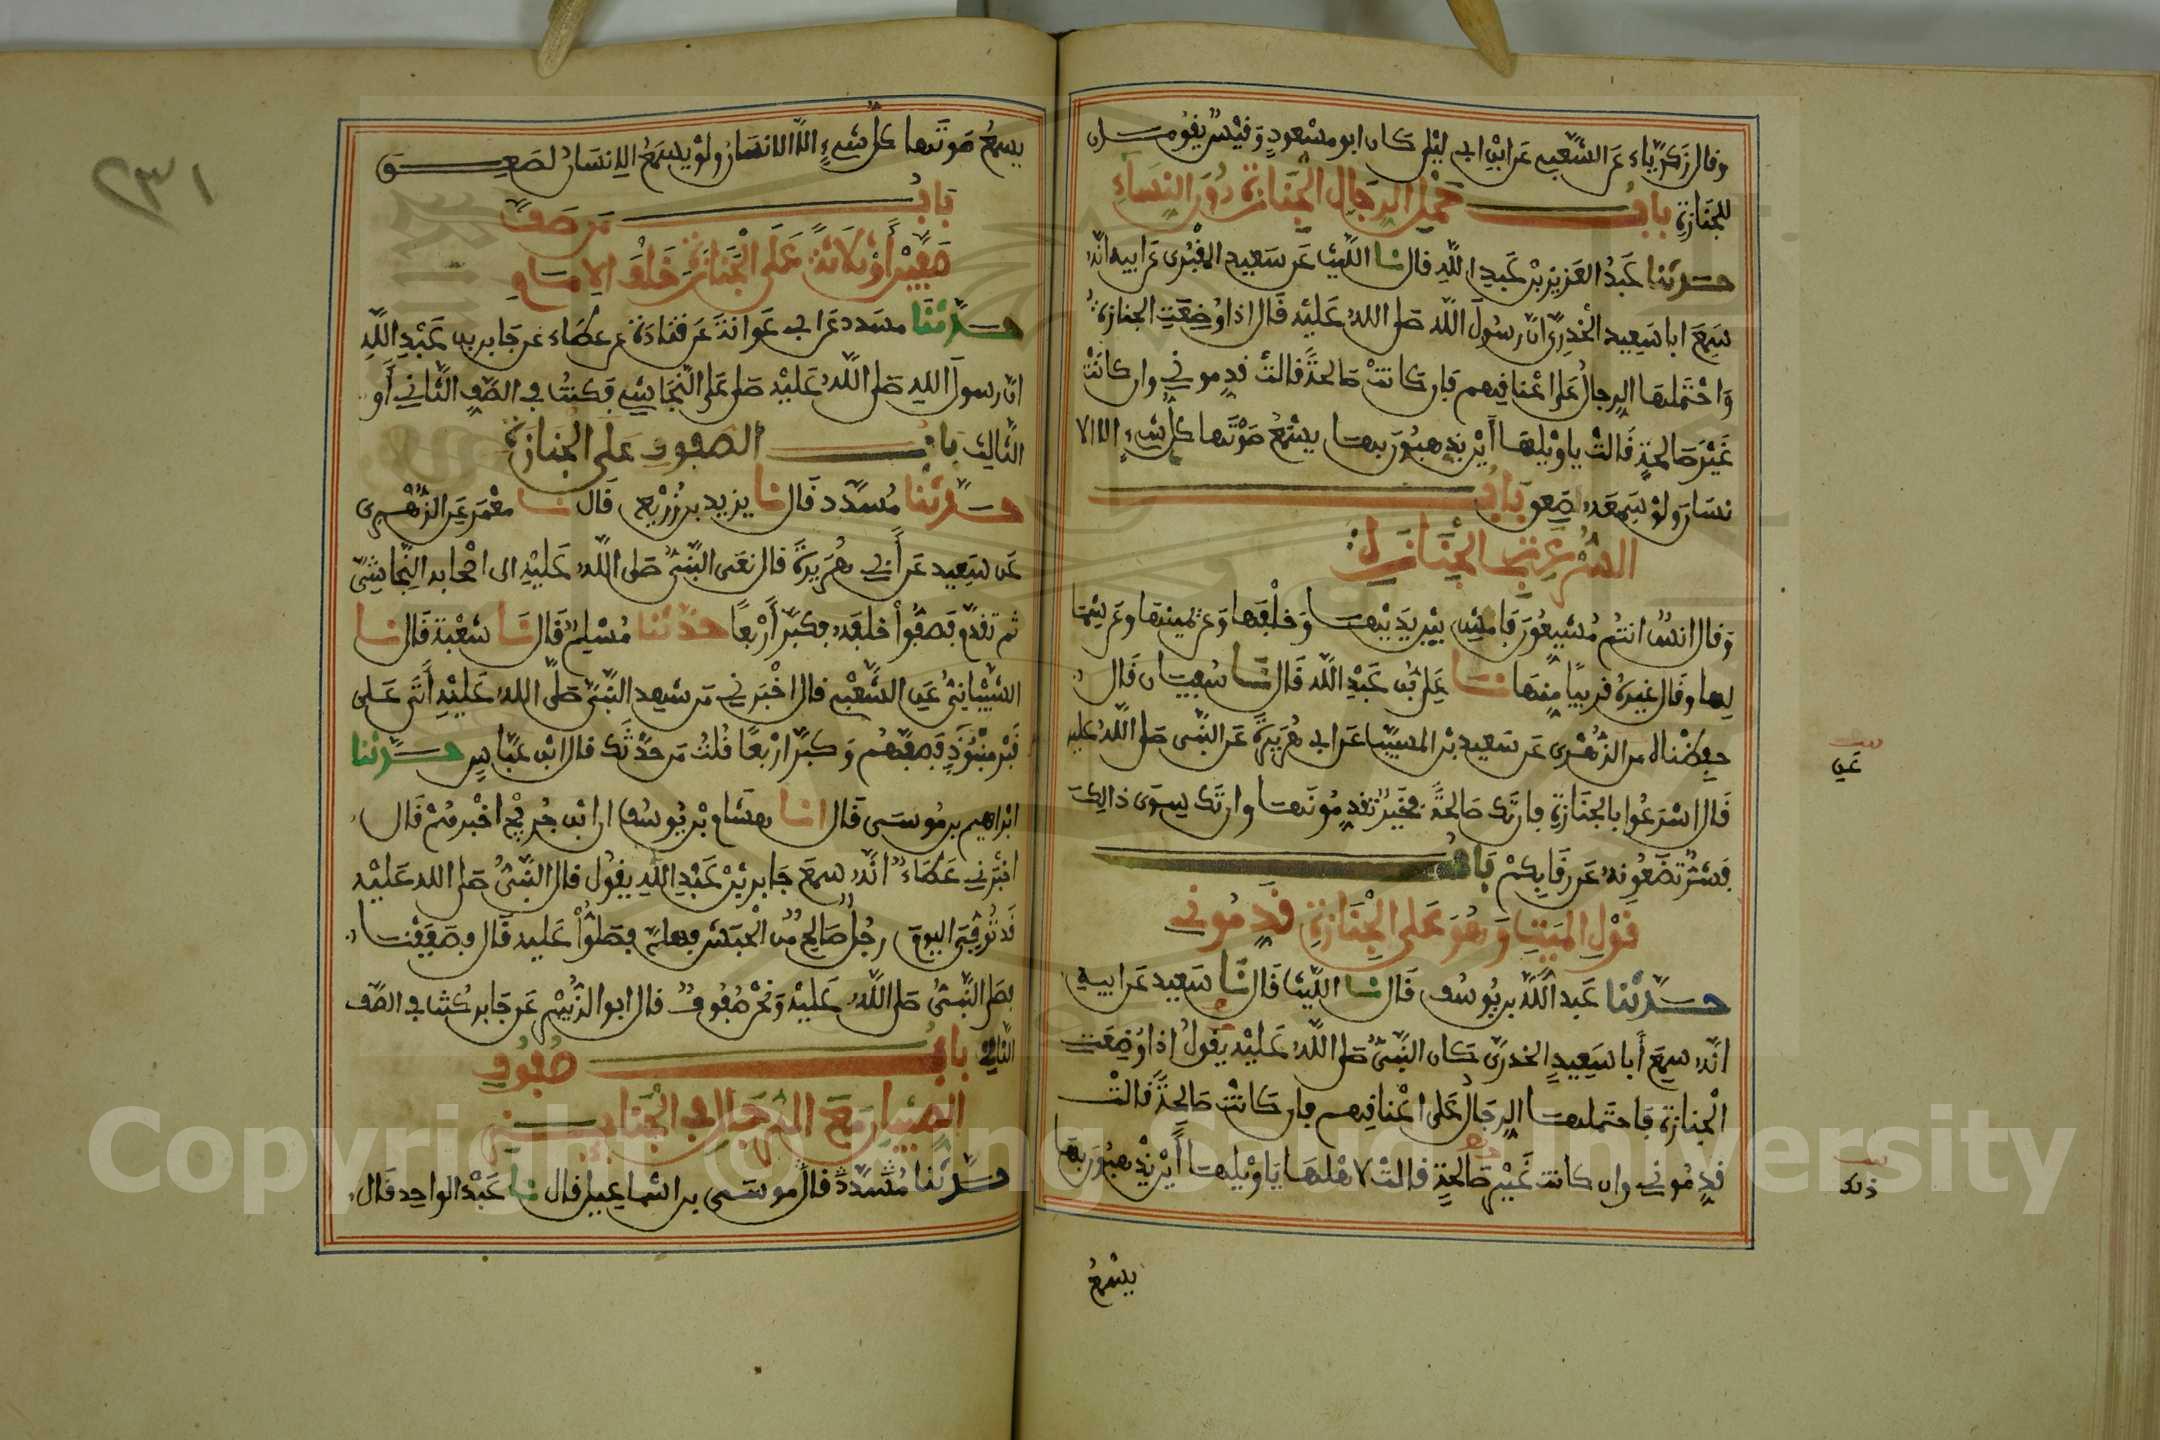 وقال زكرياء عن الشعبي عن ابن ابي ليلى كان ابو مسعود وقيس يقومان
للجنازة باب حمل الرجال الجنازة دون النساء
حدثنا عبد العزيز بن عبد الله قال نا الليث عن سعيد المقبرى عن ابيه انه
سمع ابا سعيد الخدرى ان رسول الله صلى الله عليه قال اذا وضعت الجنازة
واحتملها الرجال على اعناقهم فان كانت صالحة قالت قدموني وان كانت
غير صالحة قالت يا ويلها أين يذهبون بها يسمع صوتها كل شيء الا الا
نسان ولو سمعه لصعق باب
السرعة بالجنازة
وقال انس انتم مشيعون فامش بين يديها وخلفها وعن يمينها وعن شما
لها وقال غيره قريبا منها نا علي بن عبد الله قال نا سفيان قال
حفظناه من الزهرى عن سعيد بن المسيب عن ابي هريرة عن النبى صلى الله عليه
عن
قال اسرعوا بالجنازة فان تك صالحة فخير تقدمونها وان تك سوى ذالك
فشر تضعونه عن رقابكم باب
قول الميت وهو على الجنازة قدموني
حدثنا عبد الله بن يوسف قال نا الليث قال نا سعيد عن ابيه
انه سمع أبا سعيد الخدرى كان النبي صلى الله عليه يقول اذا وضعت
الجنازة فاحتملها الرجال على اعناقهم فان كانت صالحة قالت
قدموني وان كانت غير صالحة قالت لاهلها يا ويلها أين يذهبون بها
ذلك
يسمع
٢٣١
يسمع صوتها كل شيء الا الانسان ولو يسمع الانسان لصعق
باب من صف
صفين أو ثلاثة على الجنازة خلف الامام
حدثنا مسدد عن ابي عوانة عن قتادة عن عطاء عن جابر بن عبد الله
ان رسول الله صلى الله عليه صلى على النجاشي فكنت في الصف الثاني أو
الثالث باب الصفوف على الجنازة
حدثنا مسدد قال نا يزيد بن زريع قال نا معمر عن الزهرى
عن سعيد عن أبي هريرة قال نعى النبي صلى الله عليه الى اصحابه النجاشي
ثم تقدم فصفوا خلفه فكبر أربعا حدثنا مسلم قال نا شعبة قال نا
الشيباني عن الشعبي قال اخبرني من شهد النبي صلى الله عليه أتى على
قبر منبوذ فصفهم وكبر اربعا قلت من حدثك قال ابن عباس حدثنا
ابراهيم بن موسى قال انا هشام بن يوسف ان ابن جريج اخبرهم قال
اخبرني عطاء انه سمع جابر بن عبد الله يقول قال النبي صلى الله عليه
قد توفي اليوم رجل صالح من الحبش فهلم فصلوا عليه قال فصففنا
فصلى النبي صلى الله عليه ونحن صفوف قال ابو الزبير عن جابر كنت في الصف
الثاني باب صفوف
الصبيان مع الرجال في الجنائز
حدثنا موسى بن اسماعيل قال نا عبد الواحد قال
Copyright © King Saud University